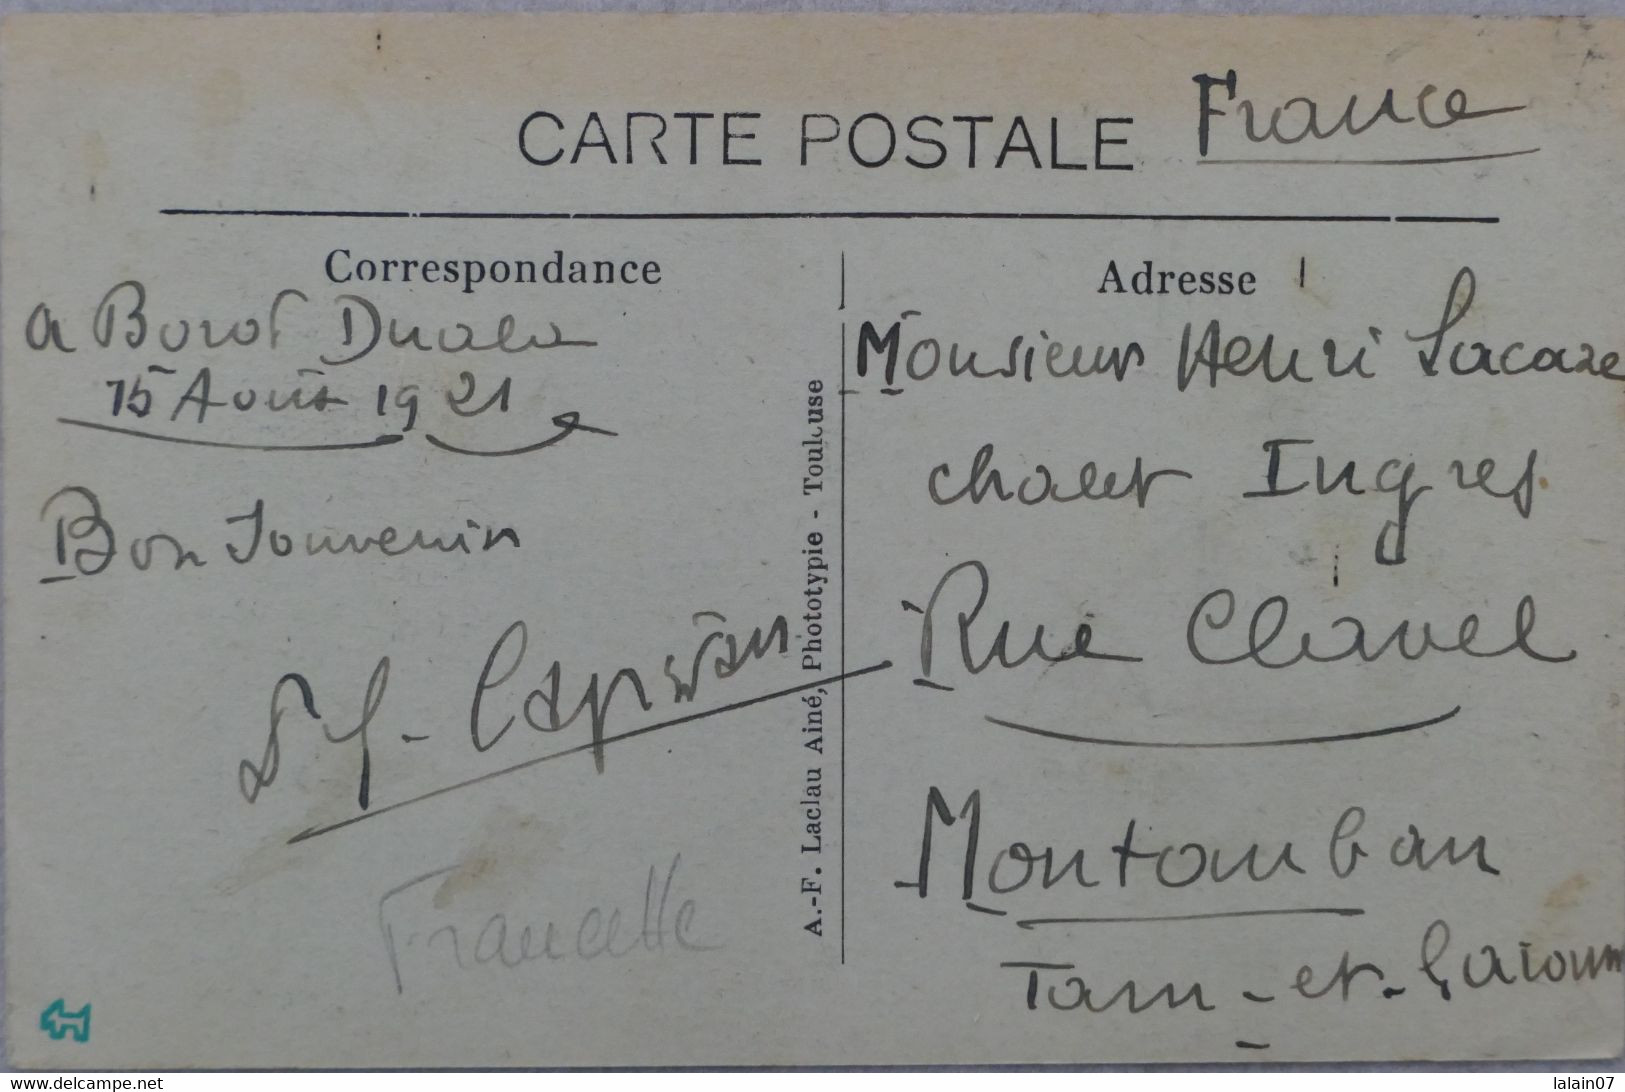 CARTE POSTALE
France
Correspondance
a Bord Duala
15 Août 1921
Bon Souvenir
Francette
A.-F. Laclau Ainé, Phototypie - Toulouse
Adresse
Monsieur Henri Lacaze
chalet Ingres
Rue Clavel
Montauban
Tarn-et-Garonne
www.delcampe.net
lalain07